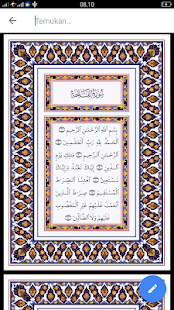 08.10
Temukan...
سُورَةُ الْفَاتِحَةِ
بِسْمِ اللَّهِ الرَّحْمَٰنِ الرَّحِيمِ ۝ الْحَمْدُ
لِلَّهِ رَبِّ الْعَالَمِينَ ۝
الرَّحْمَٰنِ الرَّحِيمِ ۝ مَالِكِ يَوْمِ
الدِّينِ ۝ إِيَّاكَ نَعْبُدُ وَإِيَّاكَ
نَسْتَعِينُ ۝ اهْدِنَا الصِّرَاطَ
الْمُسْتَقِيمَ ۝ صِرَاطَ الَّذِينَ
أَنْعَمْتَ عَلَيْهِمْ غَيْرِ الْمَغْضُوبِ
عَلَيْهِمْ وَلَا الضَّالِّينَ ۝